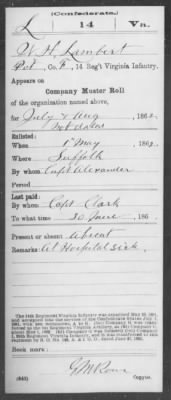 (Confederate.)
L 14 Va.
W. H. Lambert
Pvt, Co. F, 14 Reg't Virginia Infantry.
Appears on
Company Muster Roll
of the organization named above,
for July & Aug, 1862.
not dated
Enlisted:
When 1" May, 1862.
Where Suffolk
By whom Capt Alexander
Period
Last paid:
By whom Capt. Clark
To what time 30 June, 186
Present or absent Absent
Remarks: At Hospital sick.
Book mark:
G M Rowe
(642) Copyist.